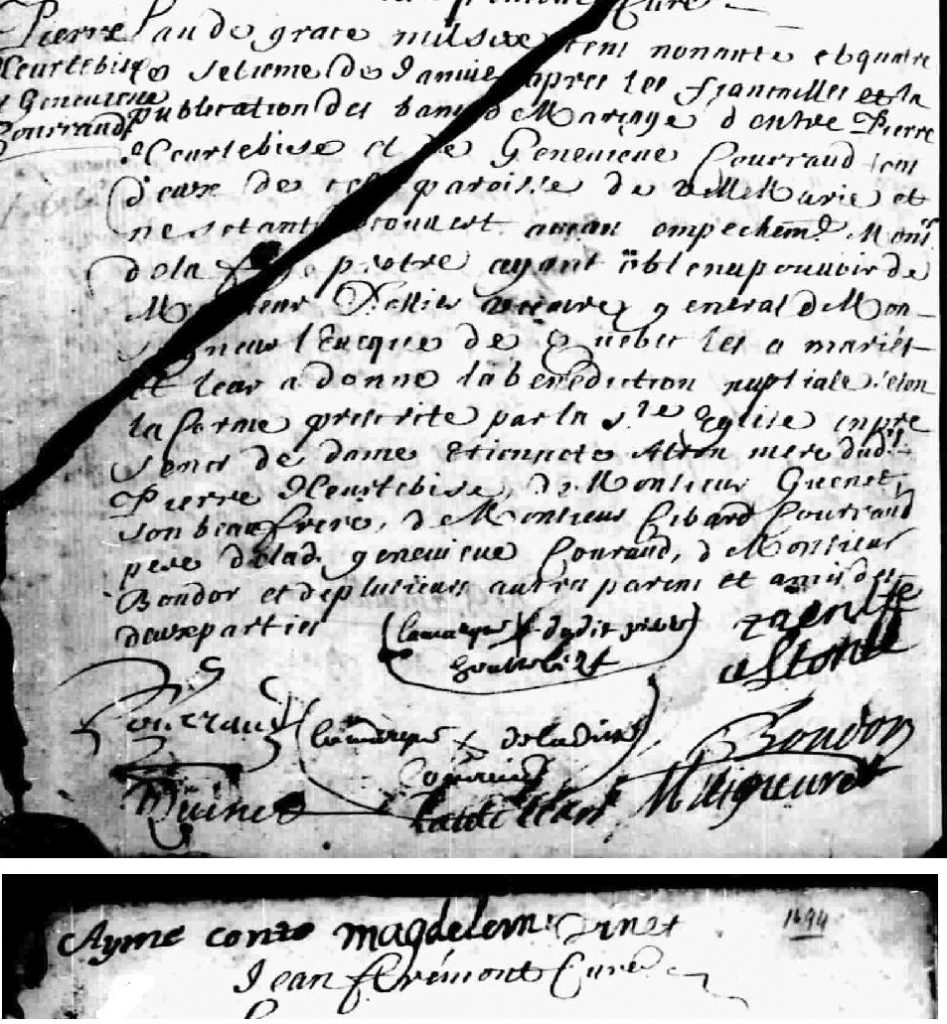 Pierre
Heurtebise
et Genevieve
Pourraud
L'an de grace mil six cent nonante et quatre
le setieme de Janvier apres les fiancailles et la
publication des bans de Mariage d'entre Pierre
Heurtebise et de Genevieve Pourraud tous
deux de cette paroisse de villeMarie et
ne s'etant trouvert aucun empechemt. Monsr
de la prètre ayant obtenu pouvoir de
Monsieur Dollier vicaire general de Mon-
seigneur l'Eveque de Quebec les a mariés
et leur a donné la benediction nuptiale selon
la forme prescrite par la Ste Eglise en pre
sence de dame Etiennete Alton mere dudt.
Pierre Heurtebise, de Monsieur Guenet
son beau frere, de Monsieur Cibard Courraud
pere de lad. genevieve Couraud, de Monsieur
Boudor et de plusieurs autres parens et amis des
deux parties
la marque + dudit pierre
heurtebise
Couraud
la marque + de ladite
Boudor
Guenet
Ayme conte magdelene Guinet 1694
Jean Frémont Curé